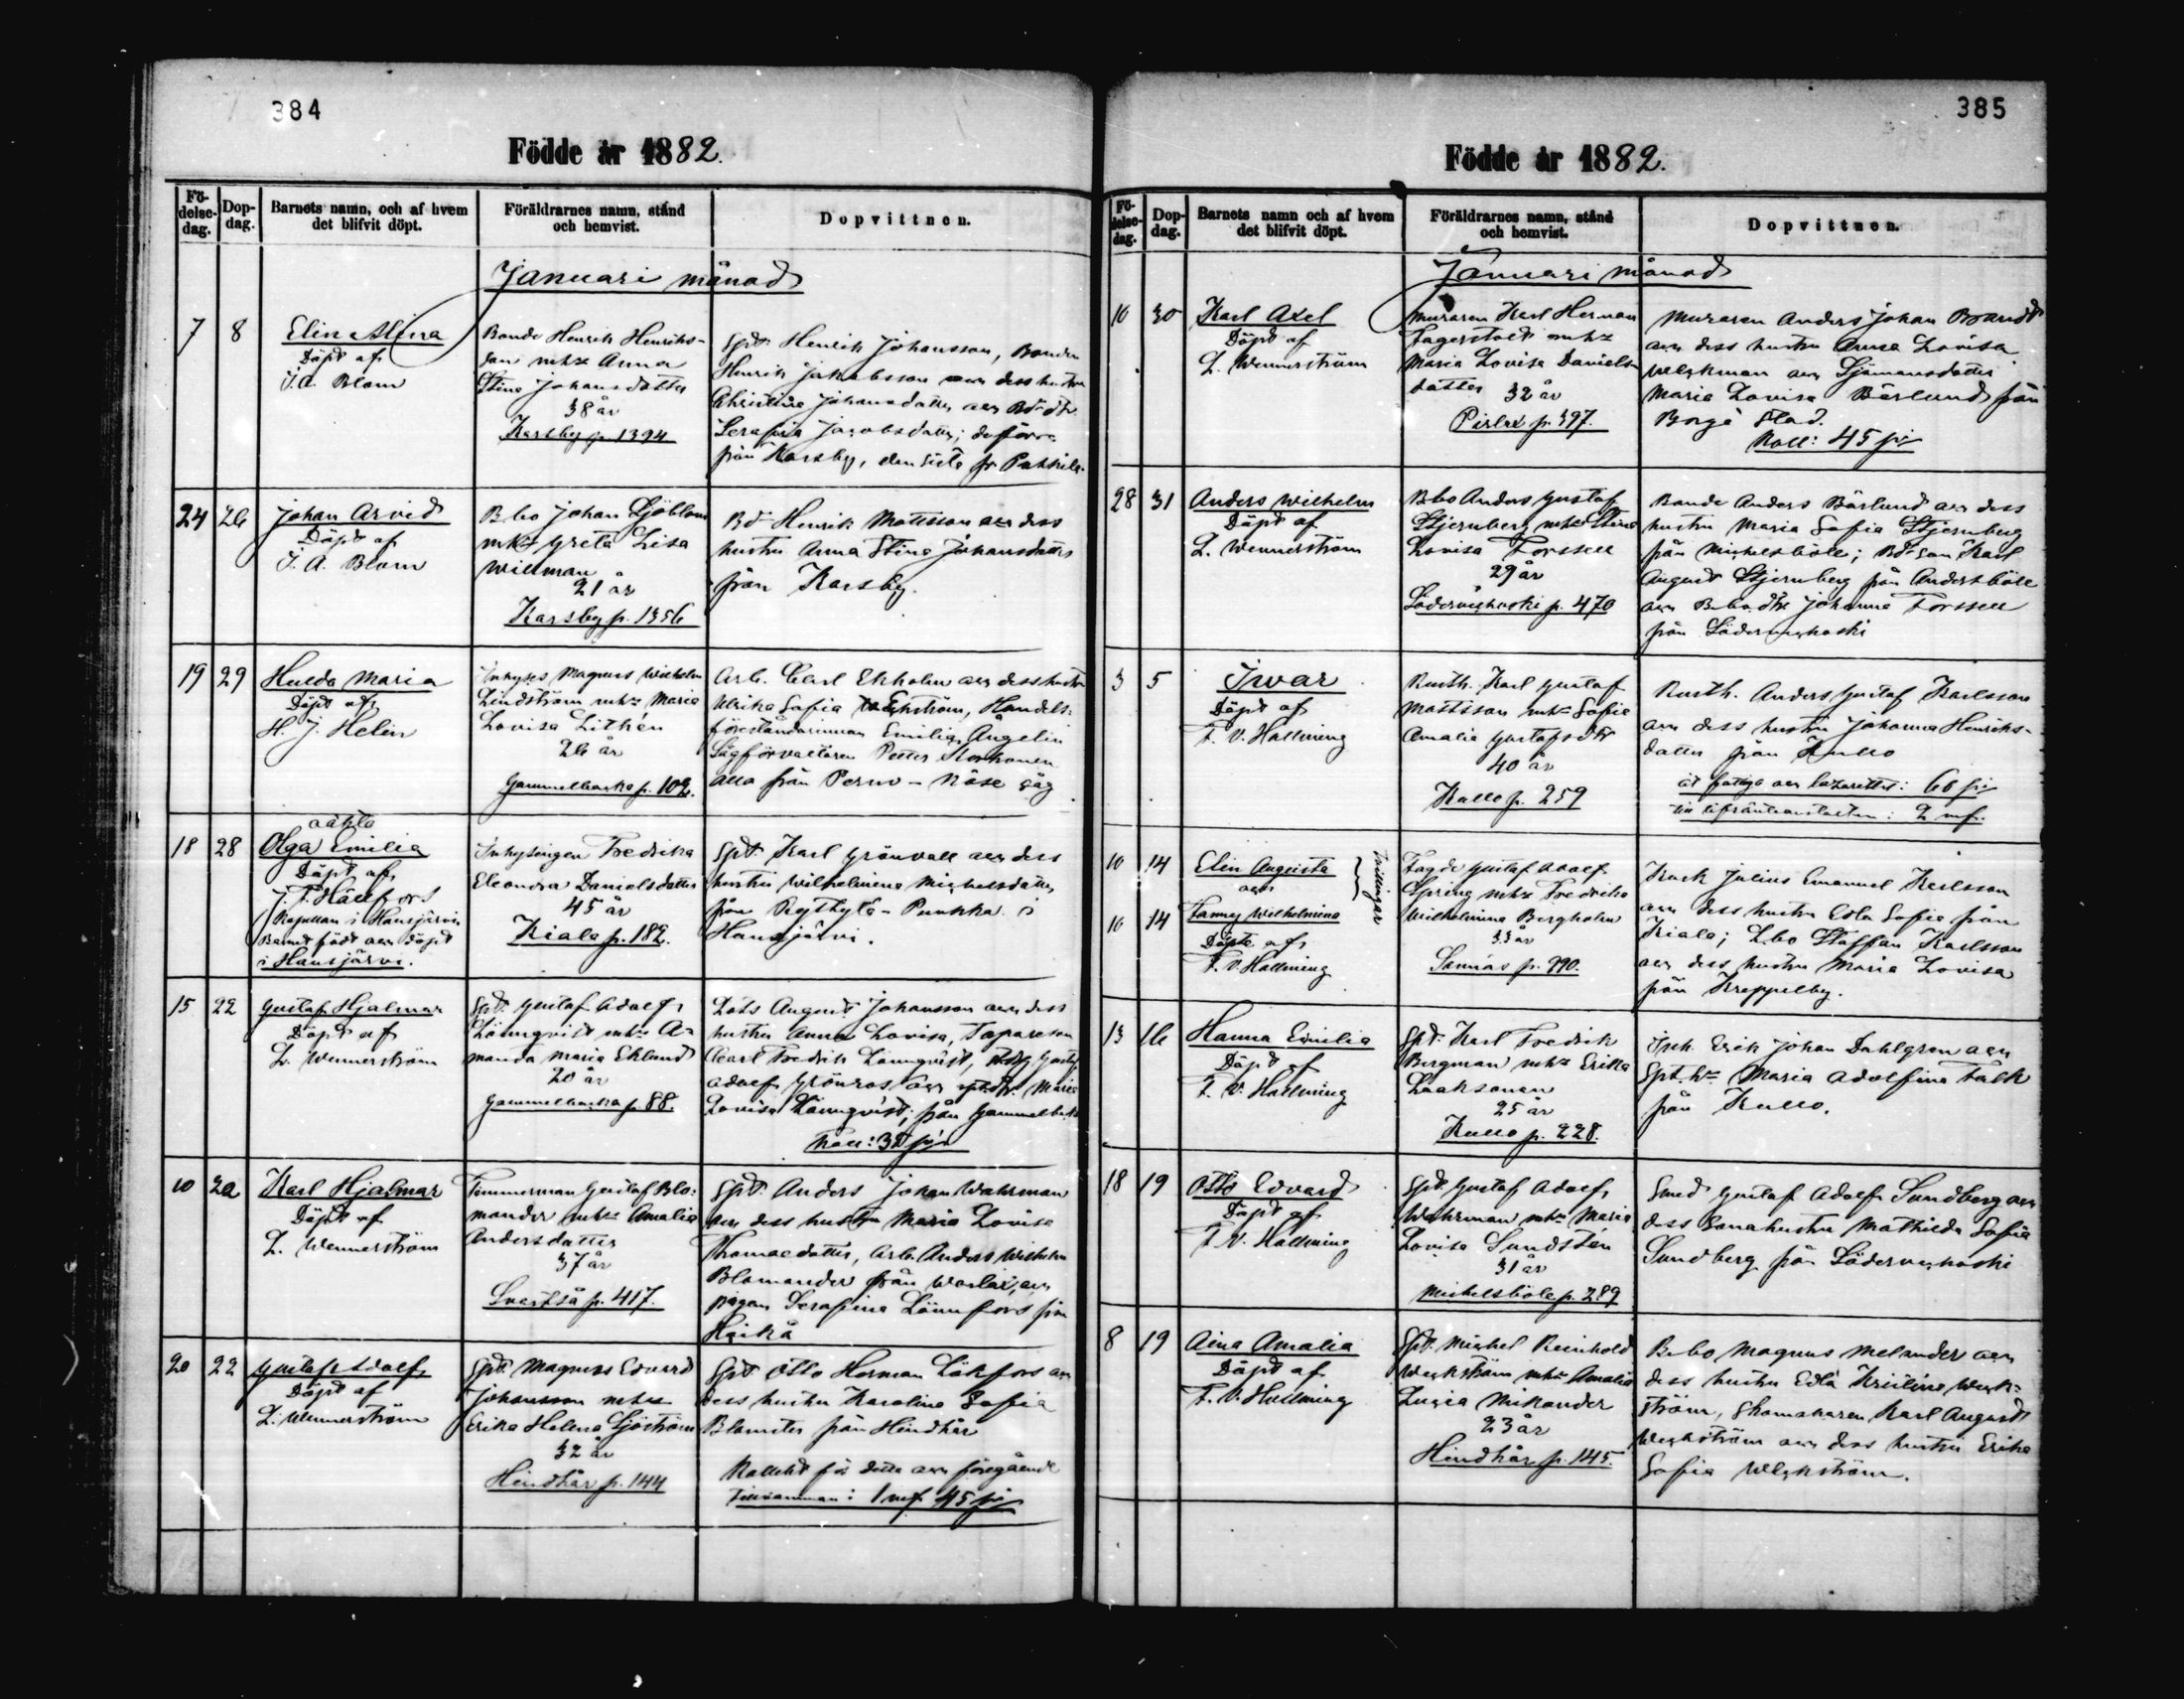 384
Födde år 1882.
Fö-
delse-
dag.
Dop-
dag.
Barnets namn, och af hvem
det blifvit döpt.
Föräldrarnes namn, stånd
och hemvist.
Dopvittnen.
Januari månad
7 8
Elin Alina
Döpt af
J. A. Blom
Bonde Henrik Henriks-
son mhu Anna
Stina Johansdotter
38 år
Karsby p. 1394
Spt. Henrik Johansson, Bonden
Henrik Jakobsson dess hustru
Christina Johansdotter
Serafia Jacobsdotter; de förre
från Karsby, den sista fr
24 26
Johan Arvid
Döpt af
J. A. Blom
B.bo Johan Sjöblom
mhu Greta Lisa
Willman
21 år
Karsby p. 1356
Bd. Henrik Mattsson och dess
hustru Anna Stina Johansdotter
från Karsby.
19 29
Hulda Maria
Döpt af
H. J. Helin
Inhyses Magnus Wilhelm
Lindström mhu Maria
Lovisa Lithén
26 år
Gammelbacka p. 102.
Arb. Carl Ekholm och dess hustru
Ulrika Sofia Ekström, Handels-
föreståndarinnan Emilia Ångelin
Sågförvaltaren Petter Korhonen
alla från Perno-Näse såg
18 28
oäkta
Olga Emilia
Döpt af
J. F. Hällfors
Kapellan i Hausjärvi
Barnet födt och döpt
i Hausjärvi.
Inhysingen Fredrika
Eleonora Danielsdotter
45 år
Kiala p. 182.
Spt. Karl Grönvall och dess
hustru Wilhelmina Michelsdotter
från Punkka i
Hausjärvi.
15 22
Gustaf Hjalmar
Döpt af
L. Wennerström
Spt. Gustaf Adolf
Lönnqvist mhu A-
manda Maria Eklund
20 år
Gammelbacka p. 88.
Lots August Johansson och dess
hustru Anna Lovisa,
Carl Fredrik Lönnqvist, Gustaf
Adolf Grönros och Maria
Lovisa Lönnqvist, från Gammelbacka
10 22
Karl Hjalmar
Döpt af
L. Wennerström
Timmerman Gustaf Blo-
mander mhu Amalia
Andersdotter
37 år
Svartså p. 417.
Spt. Anders Johan Wahrman
och dess hustru Maria Lovisa
Thomasdotter, Arb. Anders Wilhelm
Blomander från och
pigan Serafina Lönnfors från
Haikå
20 22
Gustaf Adolf
Döpt af
L. Wennerström
Spt. Magnus Edvard
Johansson mhu
Erika Helena Sjöström
32 år
Hindhår p. 144
Spt. Otto Herman Löfors och
dess hustru Karolina Sofia
Blomster från Hindhår
Kollekt för detta och föregående
tillsamman: 1 mf 45 pi
385
Födde år 1882.
Fö-
delse-
dag.
Dop-
dag.
Barnets namn och af hvem
det blifvit döpt.
Föräldrarnes namn, stånd
och hemvist.
Dopvittnen.
Januari månad
10 30
Karl Axel
Döpt af
L. Wennerström
Muraren Karl Herman
Fagerstedt mhu
Maria Lovisa Daniels-
dotter 32 år
Pirlax p. 397.
Muraren Anders Johan Brandt
och dess hustru Anna Lovisa
Welykman och Sjömansdotter
Maria Lovisa Bärlund från
Borgå Stad.
Koll: 45 pi
28 31
Anders Wilhelm
Döpt af
L. Wennerström
B.bo Anders Gustaf
Stjernberg mhu Stina
Lovisa Forssell
29 år
Söderveckoski p. 470
Bonde Anders Bärlund och dess
hustru Maria Sofia Stjernberg
från Michelsböle; Bd. son Karl
August Stjernberg från Andersböle
och B.bo dtr Johanna Forssell
från Söderveckoski
3 5
Ivar
Döpt af
F. V. Hallming
Rusth. Karl Gustaf
Mattsson mhu Sofia
Amalia Gustafsdtr
40 år
Kullo p. 259
Rusth. Anders Gustaf Karlsson
och dess hustru Johanna Henriks-
dotter från Kullo
åt fattiga och lazarettet: 60 pi
till lifränteanstalten: 2 mf.
10 14
Elin Augusta
och
10 14
Fanny Wilhelmina
Tvillingar
Döpte af
F. V. Hallming
Gustaf Adolf
Spring mhu Fredrika
Wilhelmina Bergholm
33 år
Sannäs p. 990.
Kusk Julius Emanuel Karlsson
och dess hustru Edla Sofia från
Kiala; L.bo Staffan Karlsson
och dess hustru Maria Lovisa
från Kreppelby.
13 16
Hanna Emilia
Döpt af
F. V. Hallming
Spt. Karl Fredrik
Bergman mhu Erika
Laaksonen
25 år
Kullo p. 228.
Inh. Erik Johan Dahlgren och
Spt. hu Maria Adolfina Falk
från Kullo.
18 19
Otto Edvard
Döpt af
F. V. Hallming
Spt. Gustaf Adolf
Wahrman mhu Maria
Lovisa Sundsten
31 år
Michelsböle p. 289
Smed Gustaf Adolf Sundberg och
dess sonahustru Mathilda Sofia
Sundberg från Söderveckoski
8 19
Aina Amalia
Döpt af
F. V. Hallming
Spt. Michel Reinhold
Weckström mhu Amalia
Lucia Mikander
23 år
Hindhår p. 145.
B.bo Magnus Melander och
dess hustru Edla Kristina Weck-
ström, Skomakaren Karl August
Weckström och dess hustru Erika
Sofia Weckström.